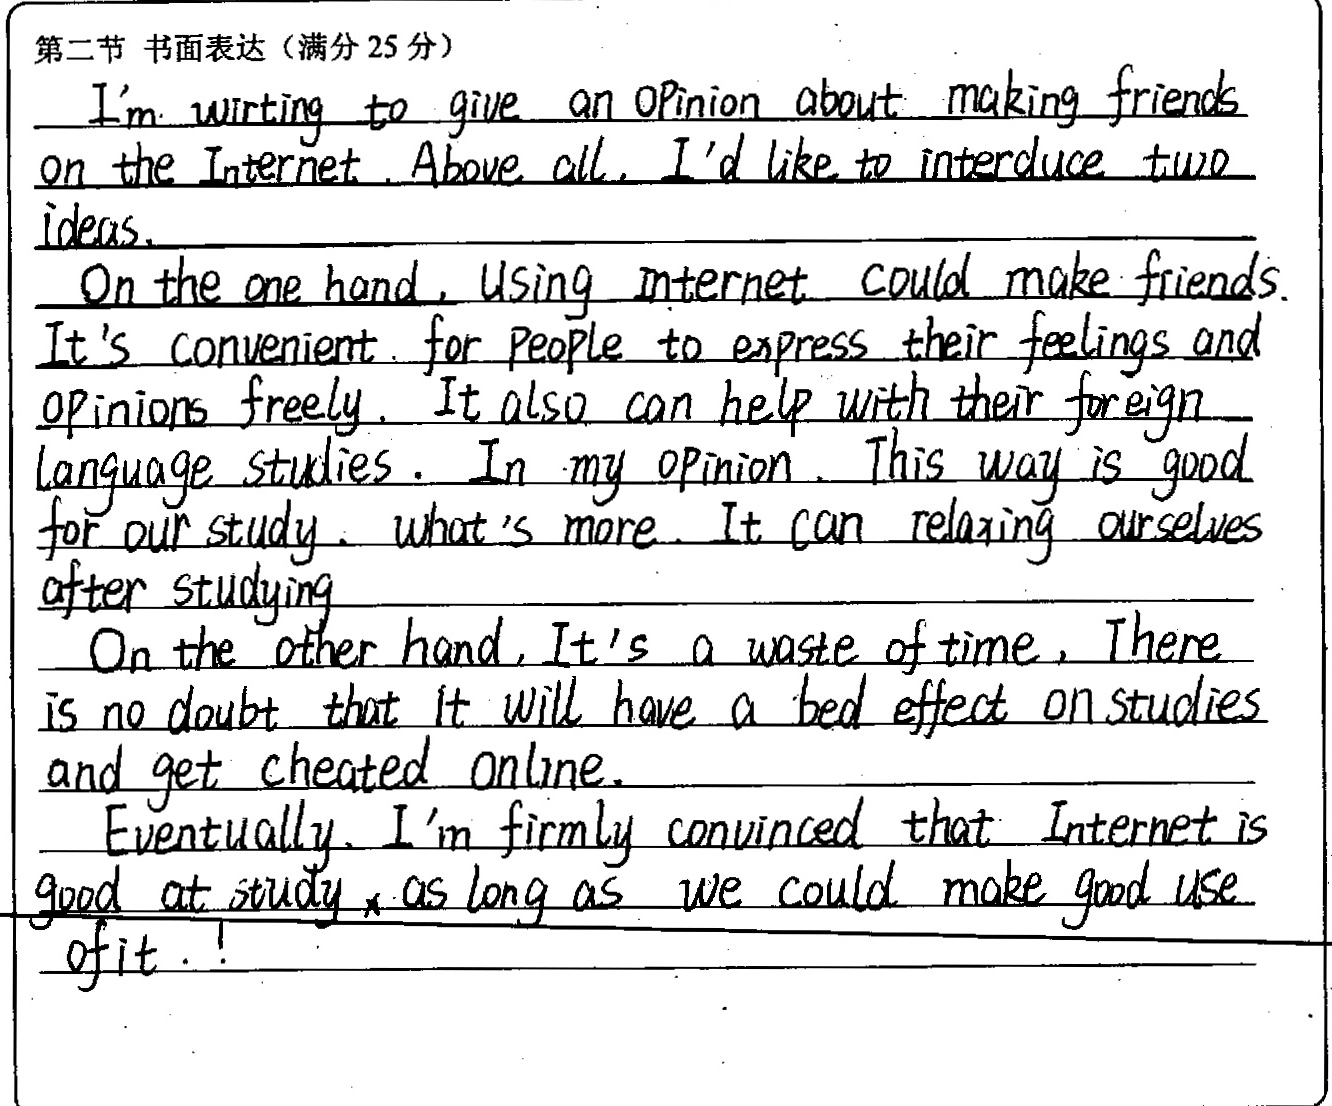 第二节 书面表达（满分 25 分）
I'm wirting to give an opinion about making friends
on the Internet. Above all, I'd like to interduce two
ideas.
On the one hand, Using internet could make friends.
It's convenient for people to express their feelings and
opinions freely. It also can help with their foreign
language studies. In my opinion. This way is good
for our study. what's more. It can relaxing ourselves
after studying
On the other hand, It's a waste of time, There
is no doubt that it will have a bed effect on studies
and get cheated online.
Eventually. I'm firmly convinced that Internet is
good at study, as long as we could make good use
of it. !